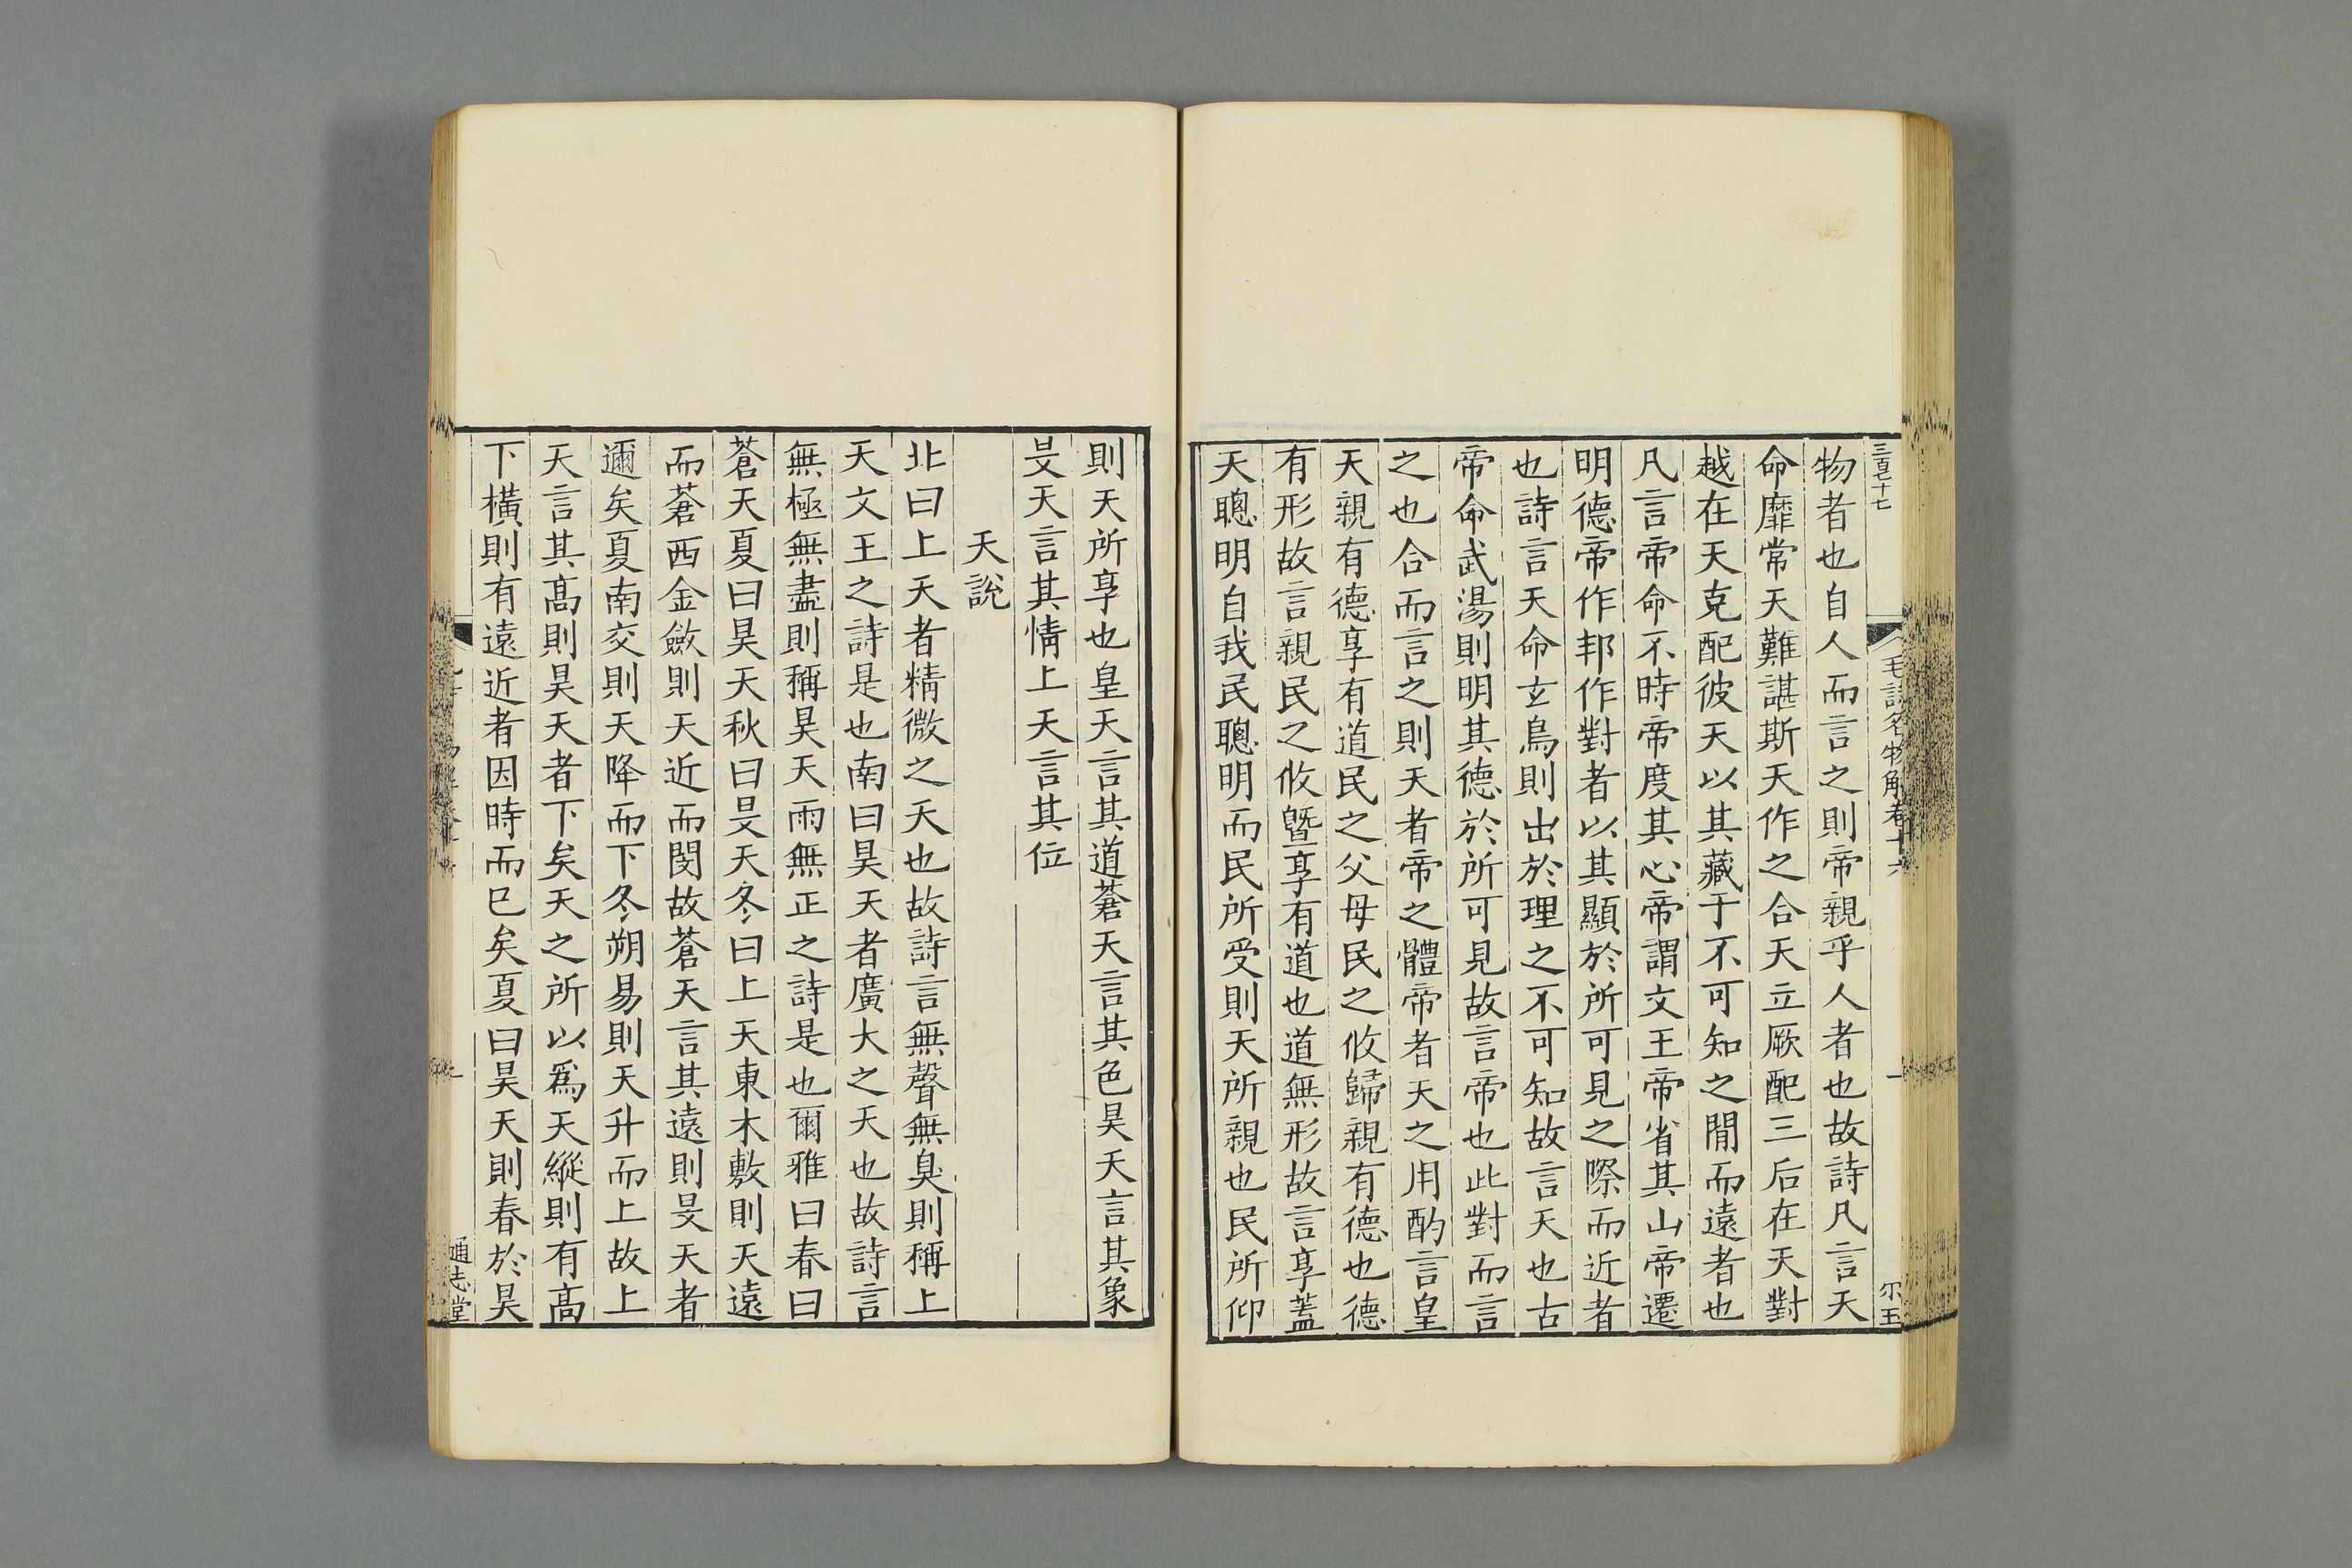 三百七十七
毛詩名物解卷十六
一
尔玉
物者也自人而言之則帝親乎人者也故詩凡言天
命靡常天難諶斯天作之合天立厥配三后在天對
越在天克配彼天以其藏于不可知之閒而遠者也
凡言帝命不時帝度其心帝謂文王帝省其山帝遷
明德帝作邦作對者以其顯於所可見之際而近者
也詩言天命玄鳥則出於理之不可知故言天也古
帝命武湯則明其德於所可見故言帝也此對而言
之也合而言之則天者帝之體帝者天之用酌言皇
天親有德享有道民之父母民之攸歸親有德也德
有形故言親民之攸曁享有道也道無形故言享蓋
天聰明自我民聰明而民所受則天所親也民所仰
則天所享也皇天言其道蒼天言其色昊天言其象
旻天言其情上天言其位
天說
北曰上天者精微之天也故詩言無聲無臭則稱上
天文王之詩是也南曰昊天者廣大之天也故詩言
無極無盡則稱昊天雨無正之詩是也爾雅曰春曰
蒼天夏曰昊天秋曰旻天冬曰上天東木敷則天遠
而蒼西金斂則天近而閔故蒼天言其遠則旻天者
邇矣夏南交則天降而下冬朔易則天升而上故上
天言其高則昊天者下矣天之所以爲天縱則有高
下橫則有遠近者因時而已矣夏曰昊天則春於昊
通志堂